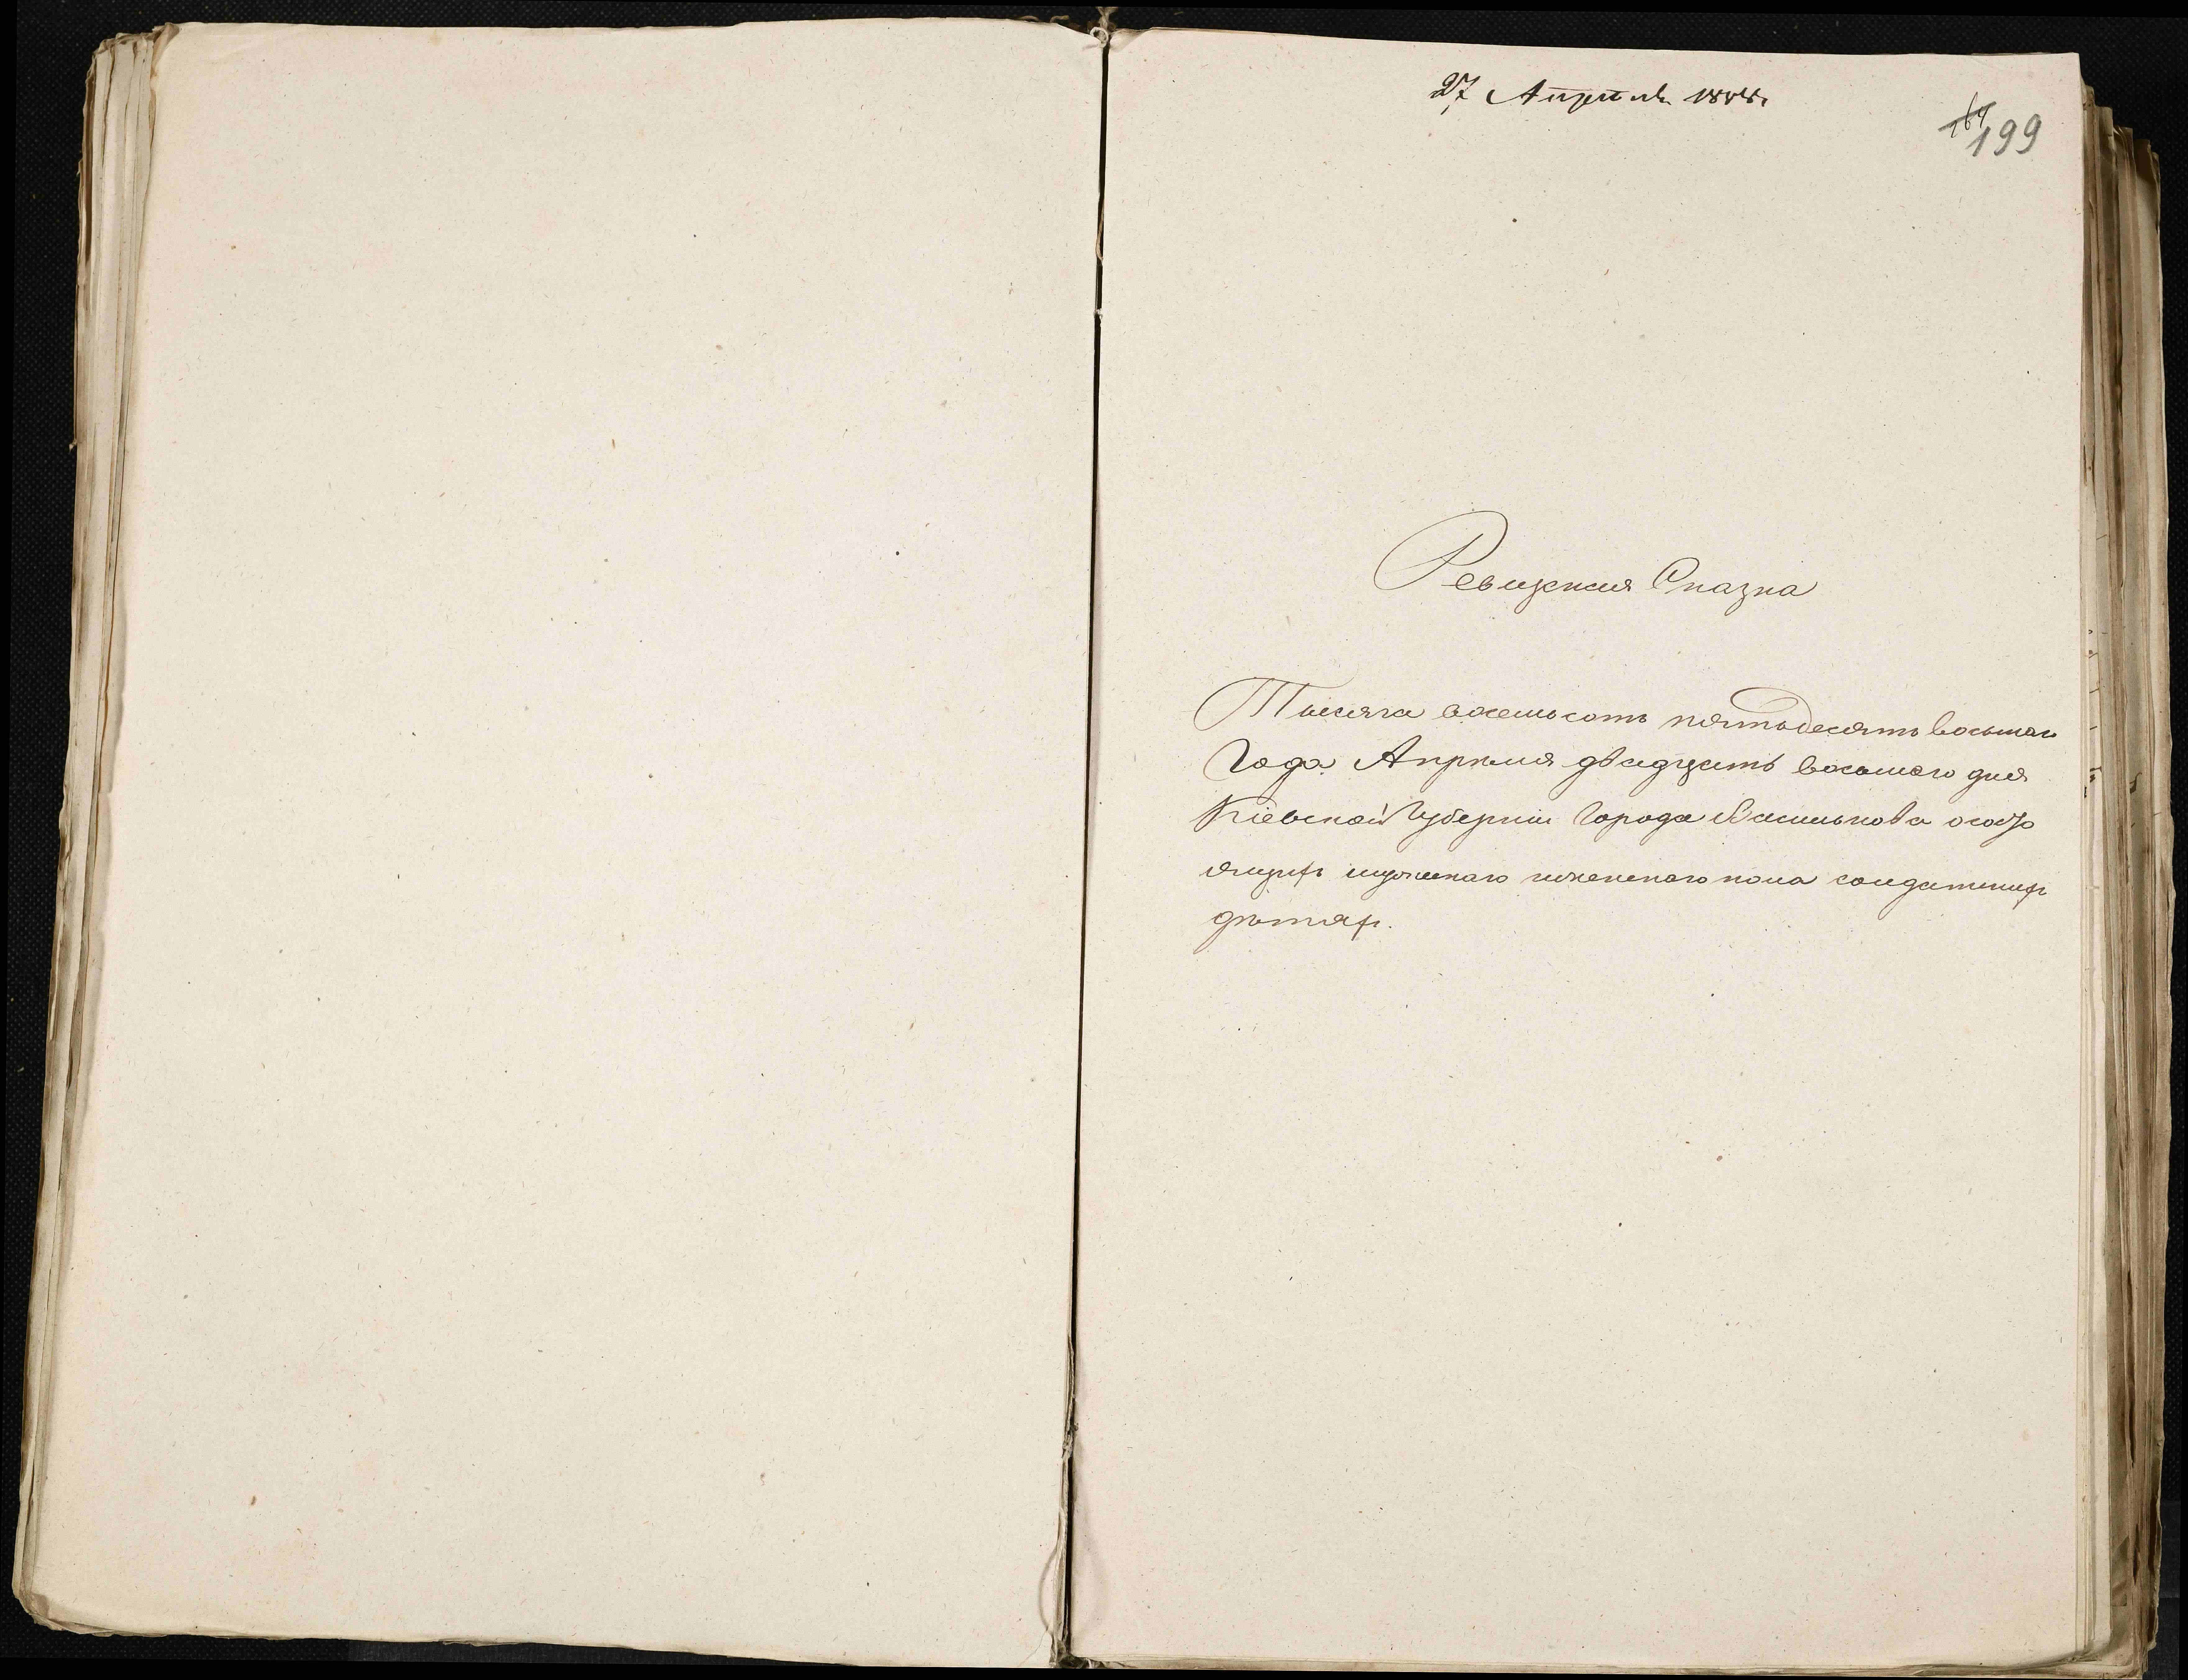 27 Апреля 1858г
169
199
Ревизская Сказка
Тысяча восемьсотъ пятьдесятъ восьмаго
Года Апрѣля двадцать восьмого дня
Кіевской Губерніи Города Василькова о состо
ящихъ мужескаго и женскаго пола солдатскихъ
дѣтяхъ.